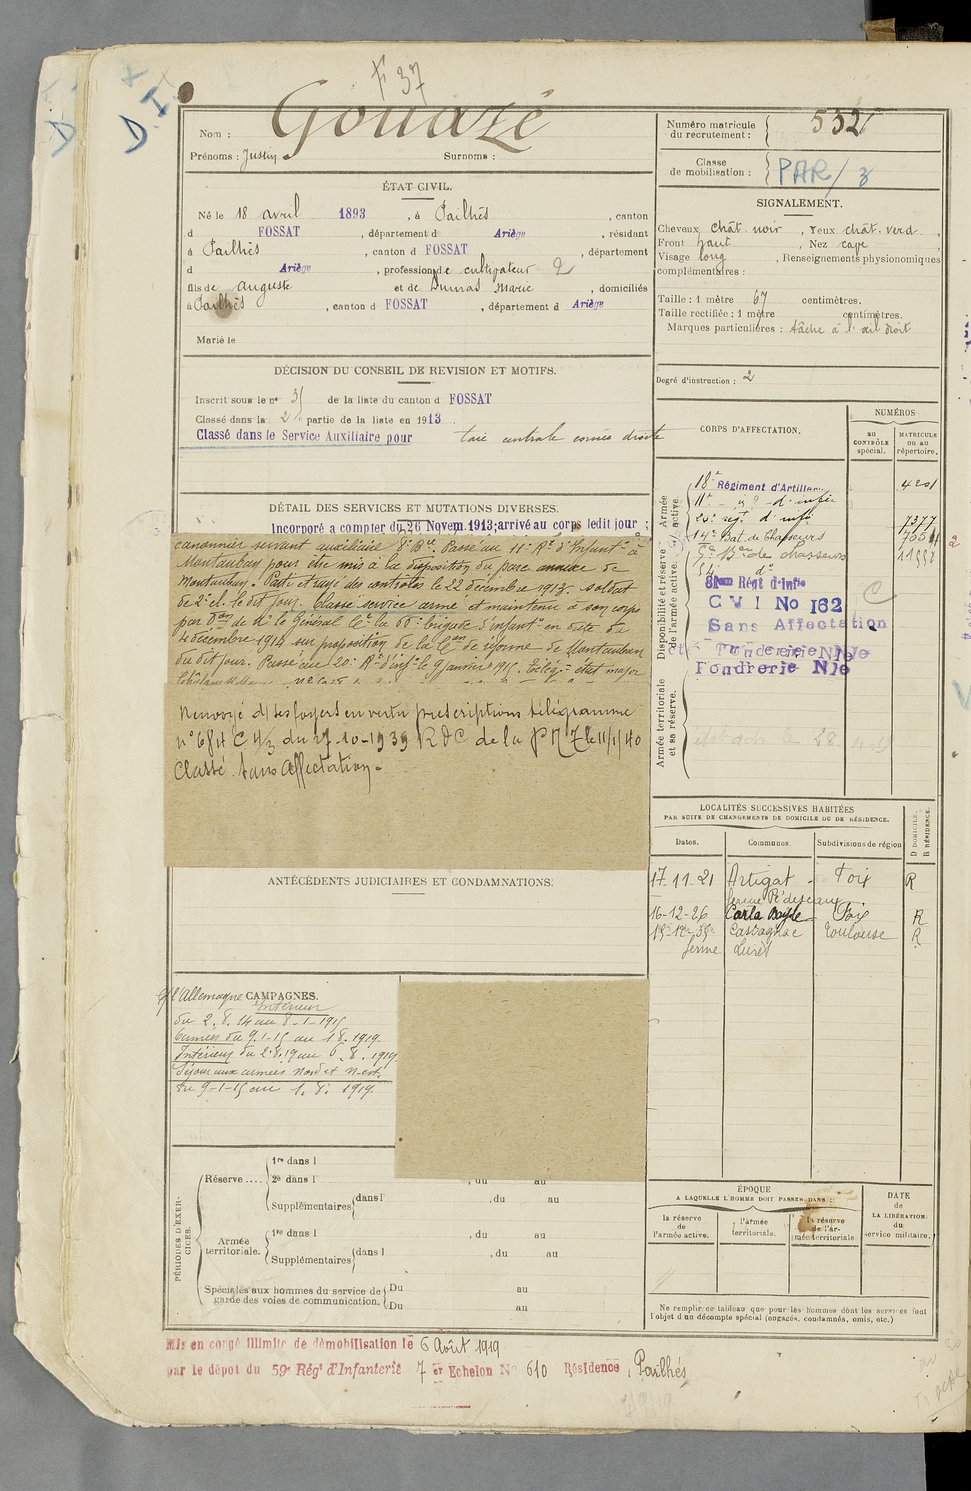 F 37
D. I.
D
Nom : Gouazé
Prénoms : Justin Surnoms :
Numéro matricule du recrutement : 552
Classe de mobilisation : PAR/3
ÉTAT CIVIL.
Né le 18 avril 1893, à Pailhès, canton
d FOSSAT, département d Ariège, résidant
à Pailhès, canton d FOSSAT, département
d Ariège, profession de cultivateur 2
fils de Auguste et de Dumas Marie, domiciliés
à Pailhès, canton d FOSSAT, département d Ariège
Marié le
SIGNALEMENT.
Cheveux chât. noir, Yeux chât. verd.
Front haut, Nez cave
Visage long, Renseignements physionomiques
complémentaires :
Taille : 1 mètre 67 centimètres.
Taille rectifiée : 1 mètre centimètres.
Marques particulières : tâche à l'œil droit
Degré d'instruction : 2
DÉCISION DU CONSEIL DE REVISION ET MOTIFS.
Inscrit sous le n° 3 de la liste du canton d FOSSAT
Classé dans la 2e partie de la liste en 1913.
Classé dans le Service Auxiliaire pour taie centrale cornée droite
DÉTAIL DES SERVICES ET MUTATIONS DIVERSES.
Incorporé a compter du 26 Novem. 1913; arrivé au corps ledit jour ;
canonnier servant auxiliaire 8e Bie. Passé au 11e Rt d'Infantie à
Montauban pour être mis à la disposition du parc annexe de
Montauban. Parti et rayé des controles le 22 décembre 1913. soldat
de 2e cl. le dit jour. Classé service armé et maintenu à son corps
par Don de Mr le Général Ct la 66e brigade d'infantie en date du
4 décembre 1914 sur proposition de la Con de réforme de Montauban
du dit jour. Passé au 20e Rt d'infie le 9 janvier 1915.
Renvoyé d/ ses foyers en vertu prescriptions télégramme
n° 684 C 4/3 du 27-10-1939 RDC de la
Classé Sans Affectation.
CORPS D'AFFECTATION.
NUMÉROS
au CONTRÔLE spécial.
MATRICULE ou au répertoire.
Armée active.
Disponibilité et réserve de l'armée active.
Armée territoriale et sa réserve.
18e Régiment d'Artillerie 4201
11e d'infie
20e régt d'infie 7377
14e Bat. de Chasseurs
5e Bon de chasseurs
54 do
81eme Régt d'Infie
C M I No 162
Sans Affectation
Fonderie Nje
Fondrerie Nje
LOCALITÉS SUCCESSIVES HABITÉES
PAR SUITE DE CHANGEMENTS DE DOMICILE OU DE RÉSIDENCE.
D DOMICILE. R RÉSIDENCE.
Dates. Communes. Subdivisions de région
17-11-21 Artigat - Foix R
16-12-26 Carla Bayle Foix R
Castagnac Toulouse R
ferme
ANTÉCÉDENTS JUDICIAIRES ET CONDAMNATIONS.
c/ l'Allemagne CAMPAGNES.
Intérieur
du 2.8.14 au 8-1-1915
Armées du 9-1-15 au 1.8.1919.
Intérieur du 2.8.19 au 6.8.1919
Séjour aux armées Nord et N-est.
du 9-1-15 au 1.8.1919.
PÉRIODES D'EXERCICES.
Réserve....
1re dans l
2e dans l , du au
Supplémentaires dans l , du au
Armée territoriale.
1re dans l , du au
Supplémentaires dans l , du au
Spéciales aux hommes du service de garde des voies de communication.
Du au
Du au
ÉPOQUE
A LAQUELLE L'HOMME DOIT PASSER DANS :
la réserve de l'armée active.
l'armée territoriale.
la réserve de l'armée territoriale
DATE DE LA LIBÉRATION du service militaire.
Ne remplir ce tableau que pour les hommes dont les services font
l'objet d'un décompte spécial (engagés, condamnés, omis, etc.)
Mis en congé illimité de démobilisation le 6 Août 1919
par le dépot du 59e Régt d'Infanterie 7 er Echelon N° 610 Résidence, Pailhès